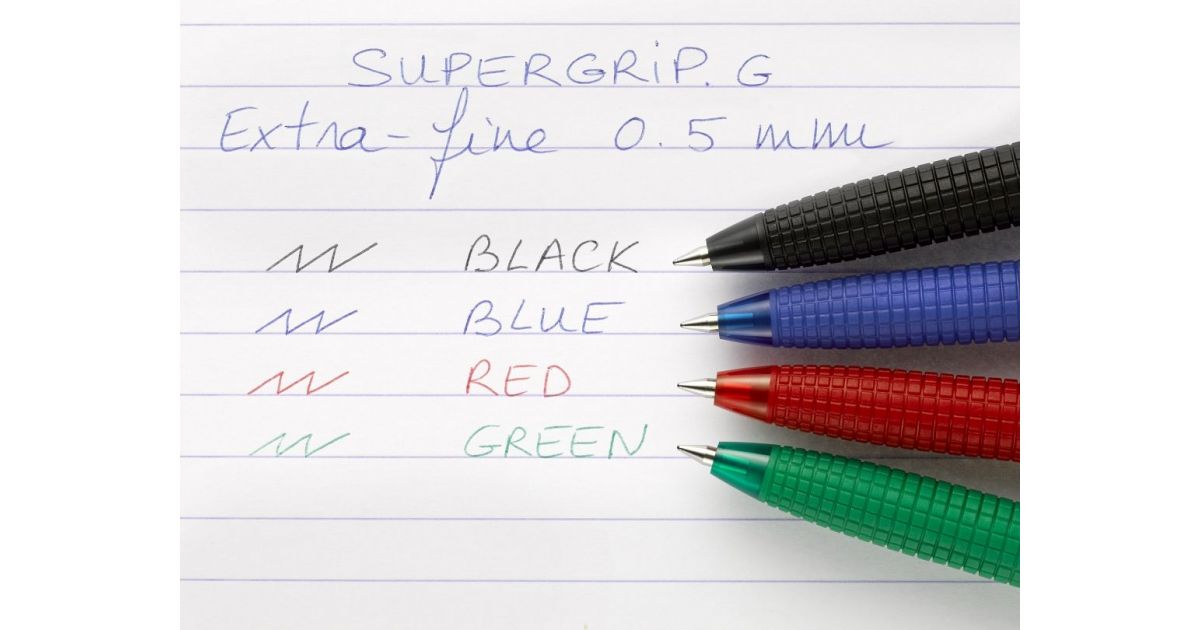 SUPERGRiP. G
Extra-fine 0.5 mm
BLACK
BLUE
RED
GREEN